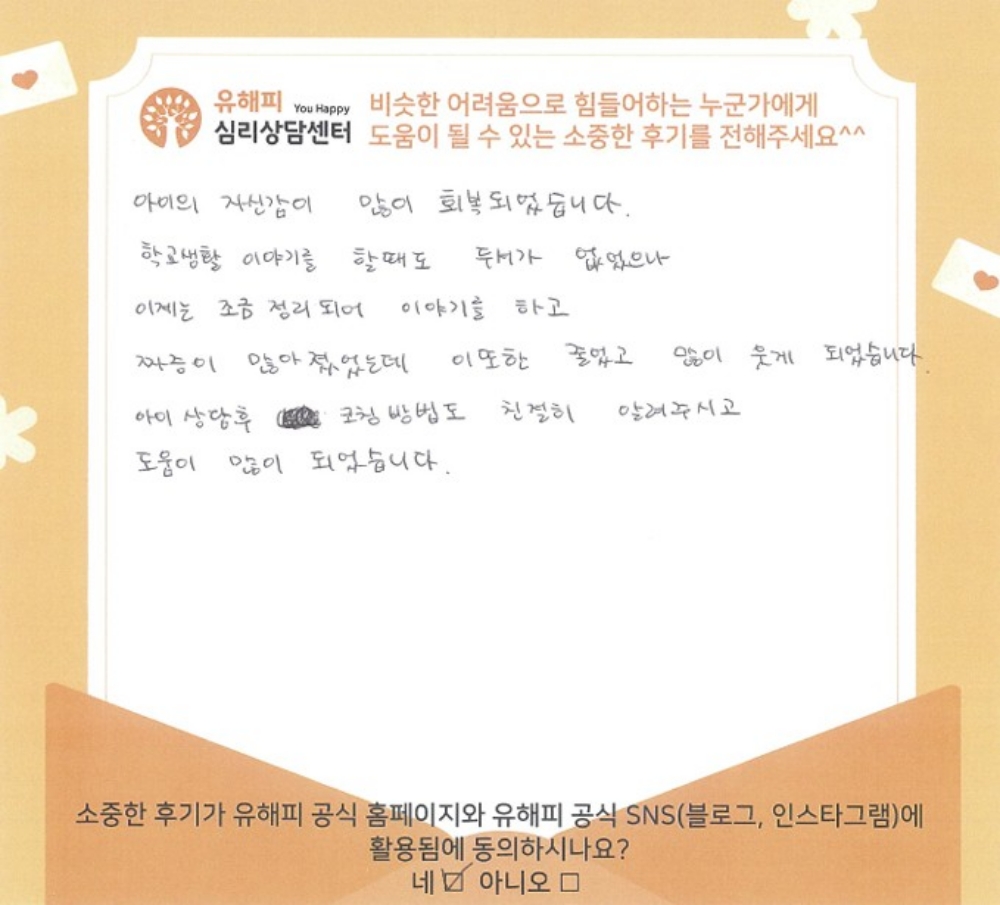 유해피 You Happy
심리상담센터
비슷한 어려움으로 힘들어하는 누군가에게
도움이 될 수 있는 소중한 후기를 전해주세요^^
아이의 자신감이 많이 회복되었습니다.
학교생활 이야기를 할때도 두서가 없었으나
이제는 조금 정리되어 이야기를 하고
짜증이 많아졌었는데 이또한 줄었고 많이 웃게 되었습니다.
아이 상담후 코칭방법도 친절히 알려주시고
도움이 많이 되었습니다.
소중한 후기가 유해피 공식 홈페이지와 유해피 공식 SNS(블로그, 인스타그램)에
활용됨에 동의하시나요?
네 ☑ 아니오 ☐